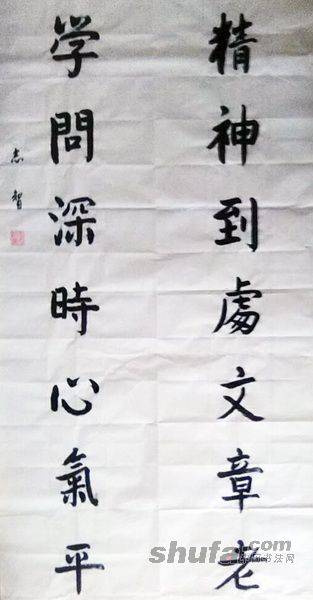 精神到處文章老
学問深時心氣平
志智
shufa.com
书法网